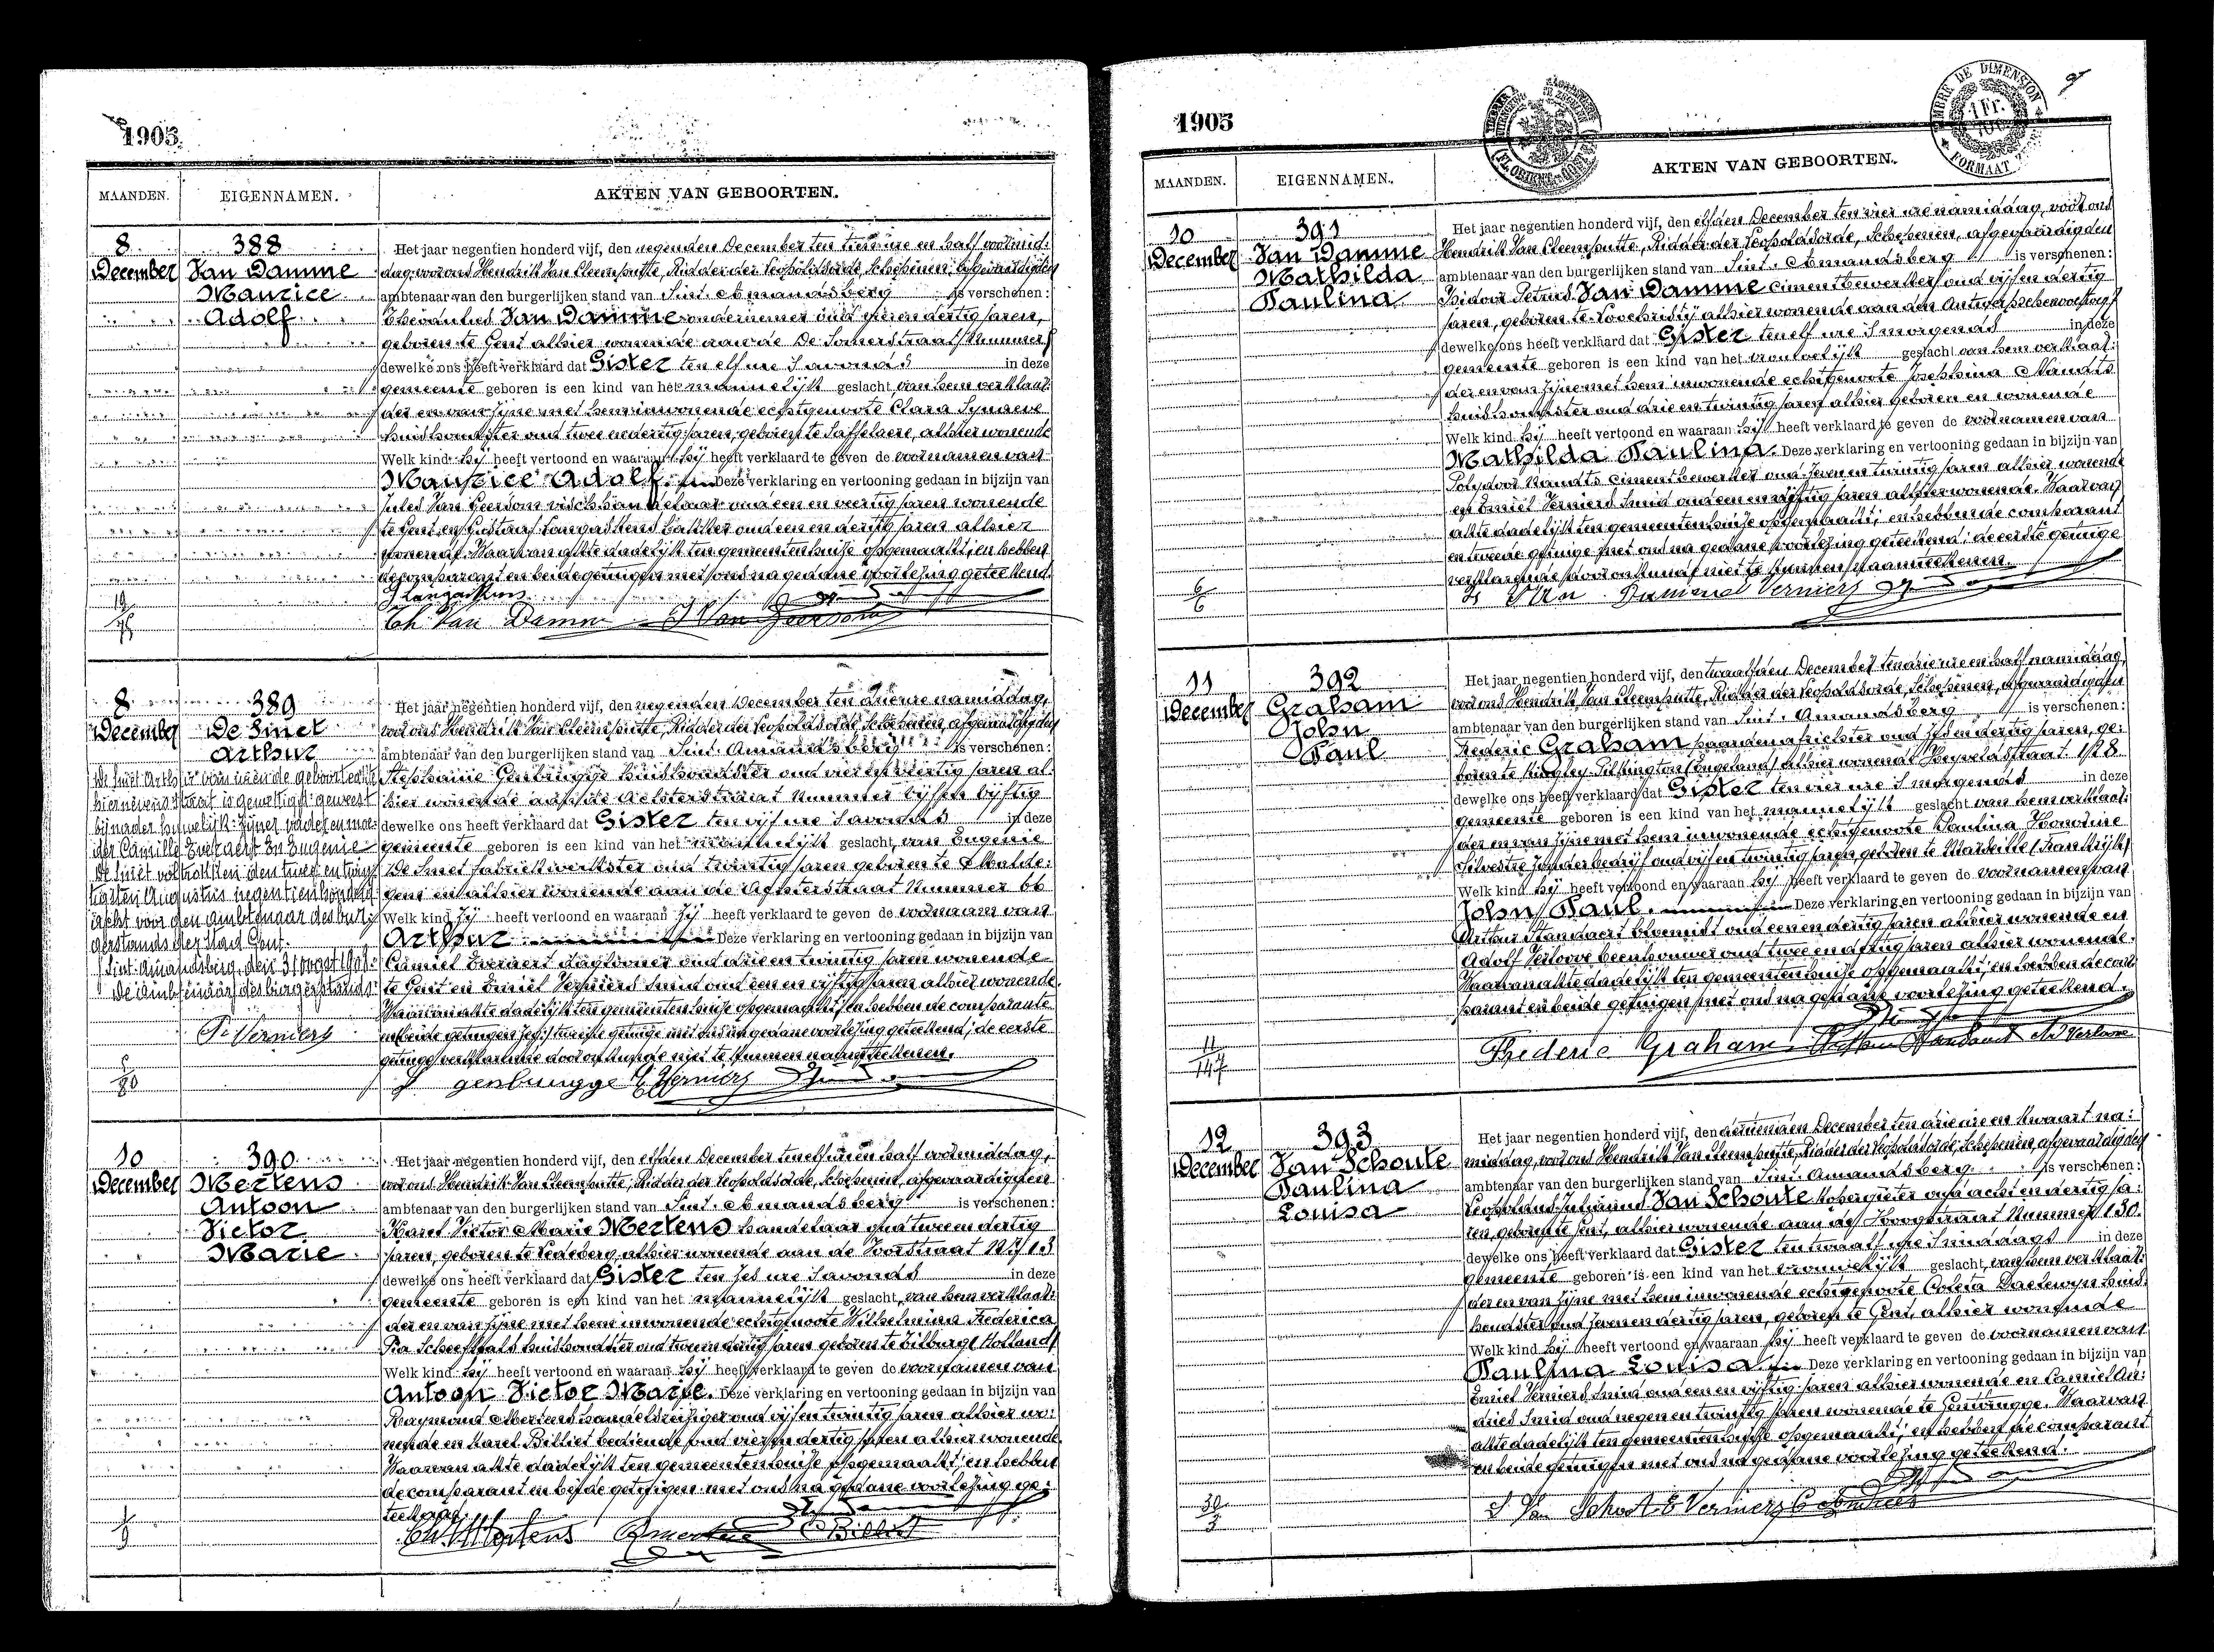 1905
MAANDEN. EIGENNAMEN. AKTEN VAN GEBOORTEN.
8 December
388
Van Damme
Maurice
Adolf
Het jaar negentien honderd vijf, den negenden December ten tien ure en half voormid:
dag, voor ons Hendrik Van Cleemputte, Ridder der Leopoldsorde, Schepenen, afgevaardigden
ambtenaar van den burgerlijken stand van Sint. Amandsberg is verschenen:
Van Damme ondernemer oud dertig jaren,
geboren te Gent alhier wonende aan de De Somerstraat Nummer
dewelke ons heeft verklaard dat Gister ten elf ure s'avonds in deze
gemeente geboren is een kind van het mannelijk geslacht, van hem verklaar:
der en van zijne met hem inwonende echtgenoote Clara Synaeve
huishoudster oud twee en dertig jaren, geboren te Saffelaere, alhier wonende
Welk kind hij heeft vertoond en waaraan hij heeft verklaard te geven de voornamen van
Maurice Adolf. Deze verklaring en vertooning gedaan in bijzijn van
Jules Van Geersom vischhandelaar oud een en veertig jaren wonende
te Gent en Gustaaf Langaskens bakker oud een en dertig jaren alhier
wonende. Waarvan akte dadelijk ten gemeentenhuize opgemaakt; en hebben
de comparant en beide getuigen met ons na gedane voorlezing geteekend.
G Langaskens
Ch. Van Damme J Van Geersom
19/75
8 December
389
De Smet
Arthur
De Smet Arthur van wien de geboorteakte
hiernevens staat is gewettigd geweest
bij nader huwelijk zijner vader en moe:
der Camille Evernert en Eugenie
De Smet voltrokken den twee en twin:
tigsten Augustus negentienhonderd
acht voor den ambtenaar des bur:
gerstands der stad Gent.
Sint-Amandsberg, den 31 oogst 1908.
De ambtenaar des burgerstands:
P. Verniers
Het jaar negentien honderd vijf, den negenden December ten drie ure namiddag,
voor ons Hendrik Van Cleemputte, Ridder der Leopoldsorde, Schepenen, afgevaardigden
ambtenaar van den burgerlijken stand van Sint. Amandsberg is verschenen:
Stephanie Genbrugge huishoudster oud vier en veertig jaren al:
hier wonende aan de Aelsterstraat Nummer vijf en vijftig
dewelke ons heeft verklaard dat Gister ten vijf ure s'avonds in deze
gemeente geboren is een kind van het mannelijk geslacht, van Eugenie
De Smet fabriekwerkster oud twintig jaren geboren te
en alhier wonende aan de Nummer 66
Welk kind zij heeft vertoond en waaraan zij heeft verklaard te geven de voornaam van
Arthur Deze verklaring en vertooning gedaan in bijzijn van
Camiel Evernert dagloner oud drie en twintig jaren wonende
te Gent en Emiel Verniers smid oud een en vijftig jaren alhier wonende.
Waarvan akte dadelijk ten gemeentenhuize opgemaakt; en hebben de comparante
en tweede getuige met ons na gedane voorlezing geteekend; de eerste
getuige verklarende door onkunde niet te kunnen naamteekenen.
genbrugge E Verniers
5/80
10 December
390
Mertens
Antoon
Victor
Marie
Het jaar negentien honderd vijf, den elfden December ten elf ure en half voormiddag,
voor ons Hendrik Van Cleemputte, Ridder der Leopoldsorde, Schepenen, afgevaardigden
ambtenaar van den burgerlijken stand van Sint. Amandsberg is verschenen:
Karel Victor Marie Mertens handelaar oud twee en dertig
jaren, geboren te Ledeberg alhier wonende aan de Voorstraat Nr 13
dewelke ons heeft verklaard dat Gister ten zes ure s'avonds in deze
gemeente geboren is een kind van het mannelijk geslacht, van hem verklaar:
der en van zijne met hem inwonende echtgenoote Wilhelmina Frederica
Pia huishoudster oud jaren geboren te Tilburg (Holland)
Welk kind hij heeft vertoond en waaraan hij heeft verklaard te geven de voornamen van
Antoon Victor Marie. Deze verklaring en vertooning gedaan in bijzijn van
Raymond Mertens handelsreiziger oud vijf en twintig jaren alhier wo:
nende en Karel Billiet bediende oud vier en dertig jaren alhier wonende.
Waarvan akte dadelijk ten gemeentenhuize opgemaakt; en hebben
de comparant en beide getuigen met ons na gedane voorlezing ge:
teekend.
Ch. V. Mertens R mertens C Billiet
1/9
1905
TIMBRE DE DIMENSION
1 Fr.
FORMAAT
FL. ORIENT.
MAANDEN. EIGENNAMEN. AKTEN VAN GEBOORTEN.
10 December
391
Van Damme
Mathilda
Paulina
Het jaar negentien honderd vijf, den elfden December ten vier ure namiddag, voor ons
Hendrik Van Cleemputte, Ridder der Leopoldsorde, Schepenen, afgevaardigden
ambtenaar van den burgerlijken stand van Sint. Amandsberg is verschenen:
Isidoor Petrus Van Damme cimentbewerker oud vijf en dertig
jaren, geboren te Loochristy alhier wonende aan den Antwerpschensteenweg
dewelke ons heeft verklaard dat Gister ten elf ure s'morgends in deze
gemeente geboren is een kind van het vrouwelijk geslacht van hem verklaar:
der en van zijne met hem inwonende echtgenoote Josephina Naudts
huishoudster oud drie en twintig jaren alhier geboren en wonende
Welk kind hij heeft vertoond en waaraan hij heeft verklaard te geven de voornamen van
Mathilda Paulina. Deze verklaring en vertooning gedaan in bijzijn van
Polydoor Naudts cimentbewerker oud zeven en twintig jaren alhier wonende
en Emiel Verniers smid oud een en vijftig jaren alhier wonende. Waarvan
akte dadelijk ten gemeentenhuize opgemaakt; en hebben de comparant
en tweede getuige met ons na gedane voorlezing geteekend; de eerste getuige
verklarende door onkunde niet te kunnen naamteekenen.
Is Van Damme E Verniers
6/6
11 December
392
Graham
John
Paul
Het jaar negentien honderd vijf, den twaalfden December ten drie ure en half namiddag,
voor ons Hendrik Van Cleemputte, Ridder der Leopoldsorde, Schepenen, afgevaardigden
ambtenaar van den burgerlijken stand van Sint. Amandsberg is verschenen:
Frederic Graham paardenafrichter oud zes en dertig jaren, ge:
boren te Pilkington (Engeland) alhier wonende 128
dewelke ons heeft verklaard dat Gister ten vier ure s'morgends in deze
gemeente geboren is een kind van het mannelijk geslacht van hem verklaar:
der en van zijne met hem inwonende echtgenoote Paulina Honorine
Silvestre zonder bedrijf oud vijf en twintig jaren geboren te Marseille (Frankrijk)
Welk kind hij heeft vertoond en waaraan hij heeft verklaard te geven de voornamen van
John Paul. Deze verklaring en vertooning gedaan in bijzijn van
Arthur Standaert bloemist oud een en dertig jaren alhier wonende en
Adolf Verloove beenhouwer oud twee en dertig jaren alhier wonende.
Waarvan akte dadelijk ten gemeentenhuize opgemaakt; en hebben de com:
parant en beide getuigen met ons na gedane voorlezing geteekend.
Frederic Graham Arthur Standaert Ad Verloove
11/147
12 December
393
Van Schoute
Paulina
Louisa
Het jaar negentien honderd vijf, den dertienden December ten drie ure en kwaart na:
middag, voor ons Hendrik Van Cleemputte, Ridder der Leopoldsorde, Schepenen, afgevaardigden
ambtenaar van den burgerlijken stand van Sint. Amandsberg is verschenen:
Leopoldus Julianus Van Schoute kopergieter oud acht en dertig ja:
ren, geboren te Gent, alhier wonende aan de Hoogstraat Nummer 130.
dewelke ons heeft verklaard dat Gister ten twaalf ure s'middags in deze
gemeente geboren is een kind van het vrouwelijk geslacht, van hem verklaar:
der en van zijne met hem inwonende echtgenoote Coleta Daelewyn huis:
houdster oud zeven en dertig jaren, geboren te Gent, alhier wonende
Welk kind hij heeft vertoond en waaraan hij heeft verklaard te geven de voornamen van
Paulina Louisa Deze verklaring en vertooning gedaan in bijzijn van
Emiel Verniers smid oud een en vijftig jaren alhier wonende en Camiel An:
dries smid oud negen en twintig jaren wonende te Gentbrugge. Waarvan
akte dadelijk ten gemeentenhuize opgemaakt; en hebben de comparant
en beide getuigen met ons na gedane voorlezing geteekend.
Van Schoute E Verniers C Andries
30/3